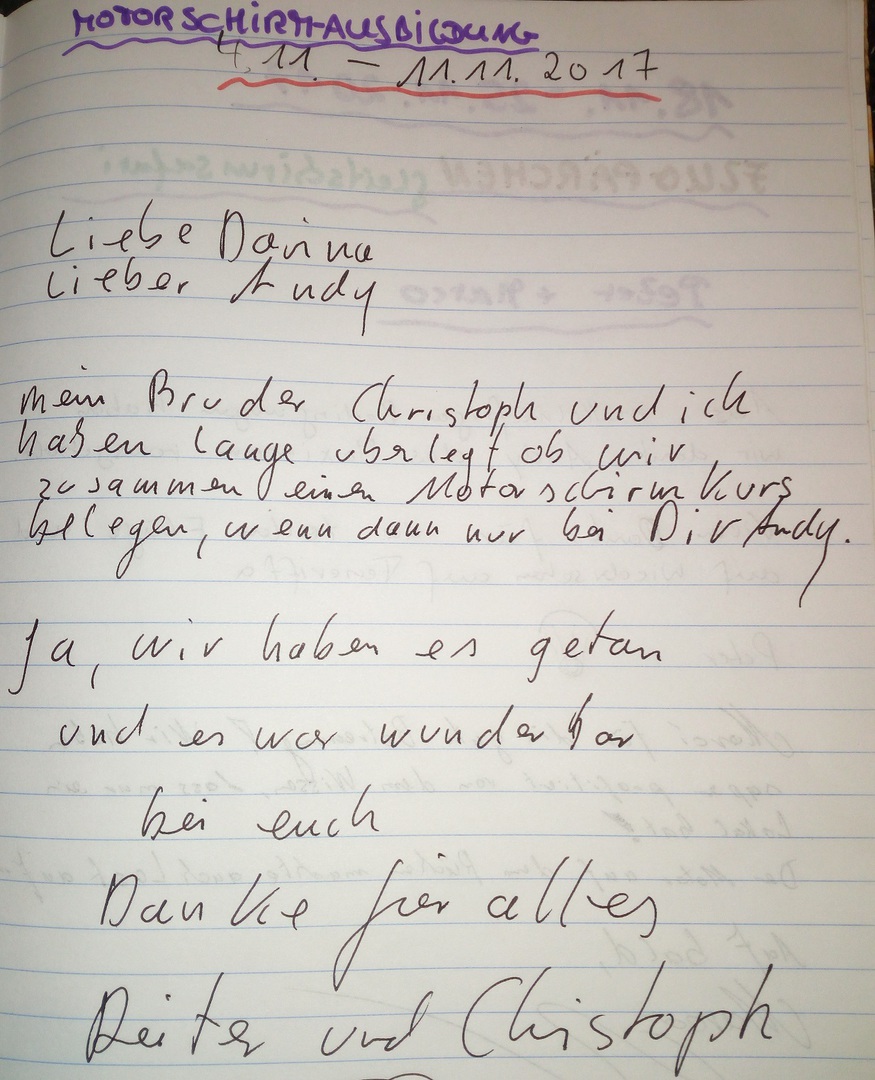 MOTORSCHIRM-AUSBILDUNG
4.11. – 11.11.2017
Liebe Danina
Lieber Andy
mein Bruder Christoph und ich
haben lange uberlegt ob wir
zusammen einen Motorschirm Kurs
belegen, wenn dann nur bei Dir Andy.
Ja, wir haben es getan
und es war wunderbar
bei euch
Danke für alles
und Christoph